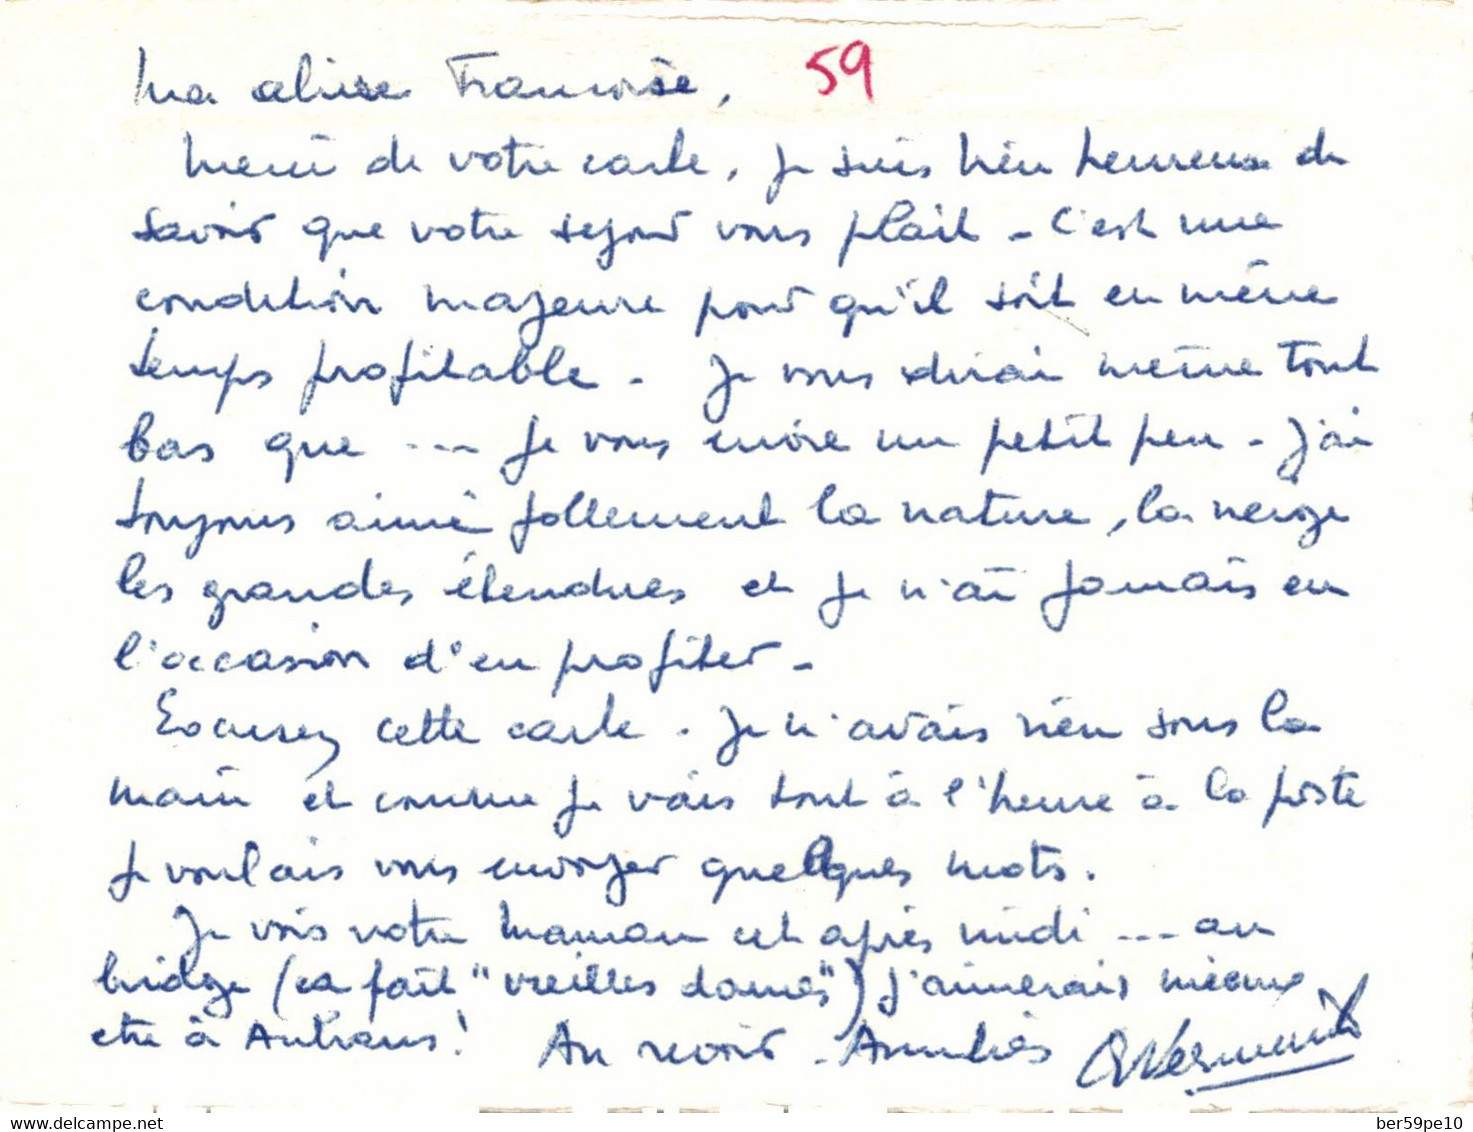 Ma chère Françoise, 59
Merci de votre carte, je suis bien heureuse de
savoir que votre sejour vous plait - c'est une
condition majeure pour qu'il soit en même
temps profitable - Je vous dirai même tout
bas que ... je vous envie un petit peu - J'ai
toujours aimé follement la nature, la neige
les grandes étendues et je n'ai jamais eu
l'occasion d'en profiter -
Excusez cette carte. Je n'avais rien sous la
main et comme je vais tout à l'heure à la poste
je voulais vous envoyer quelques mots.
Je vois votre Maman cet après midi ... au
bridge (ca fait "vieilles dames") j'aimerais mieux
etre à Autrans! Au revoir - Amitiés
delcampe.net
ber59pe10